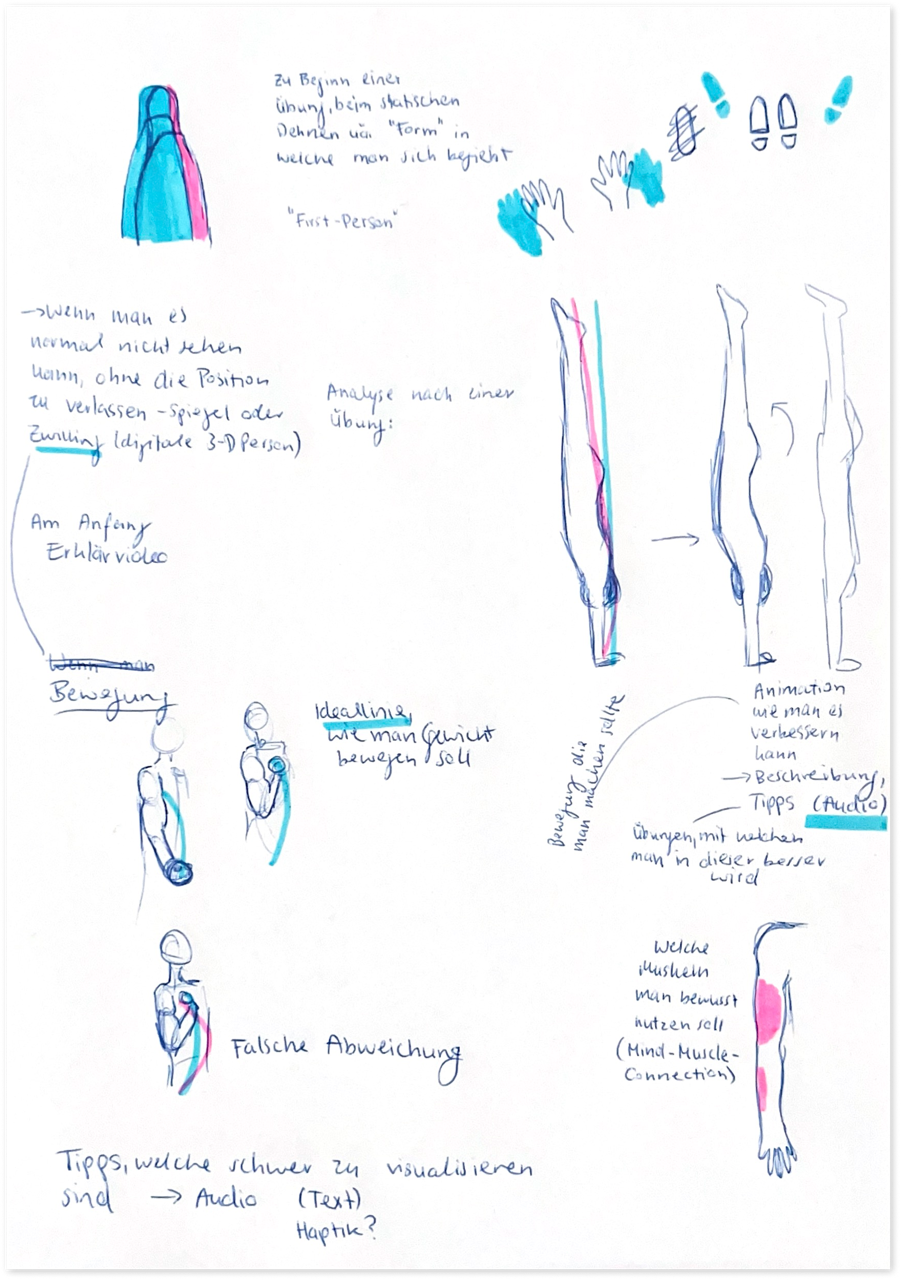 Zu Beginn einer
Übung, beim statischen
Dehnen uä. "Form" in
welche man sich begiebt
"First-Person"
→ Wenn man es
normal nicht sehen
kann, ohne die Position
zu verlassen - Spiegel oder
Zwilling (digitale 3-D Person)
Analyse nach einer
Übung:
Am Anfang
Erklärvideo
Wenn man
Bewegung
Ideallinie,
wie man Gewicht
bewegen soll
Bewegung die
man machen sollte
Animation
wie man es
verbessern
kann
→ Beschreibung,
Tipps (Audio)
Übungen, mit welchen
man in dieser besser
wird
Falsche Abweichung
Welche
Muskeln
man bewusst
nutzen soll
(Mind-Muscle-
Connection)
Tipps, welche schwer zu visualisieren
sind → Audio (Text)
Haptik?